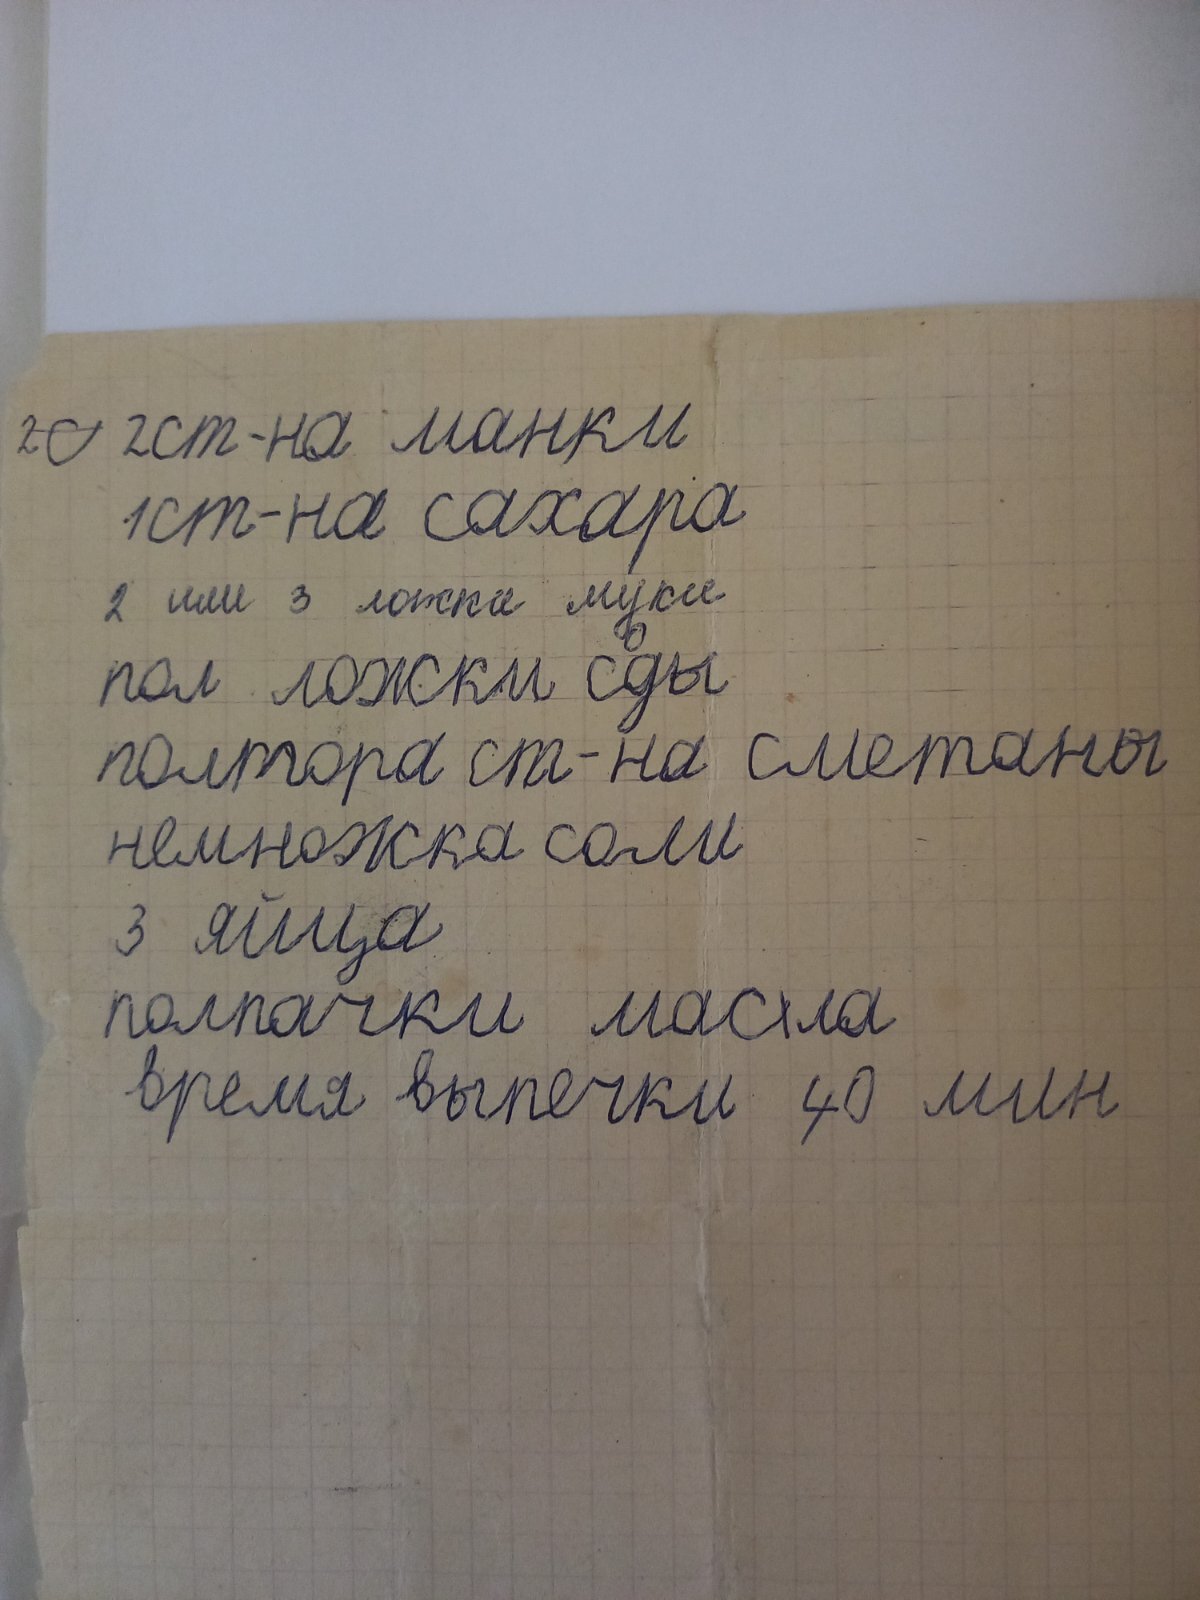 2ст-на манки
1ст-на сахара
2 или 3 ложки муки
пол ложки соды
полтора ст-на сметаны
немножка соли
3 яйца
полпачки масла
время выпечки 40 мин